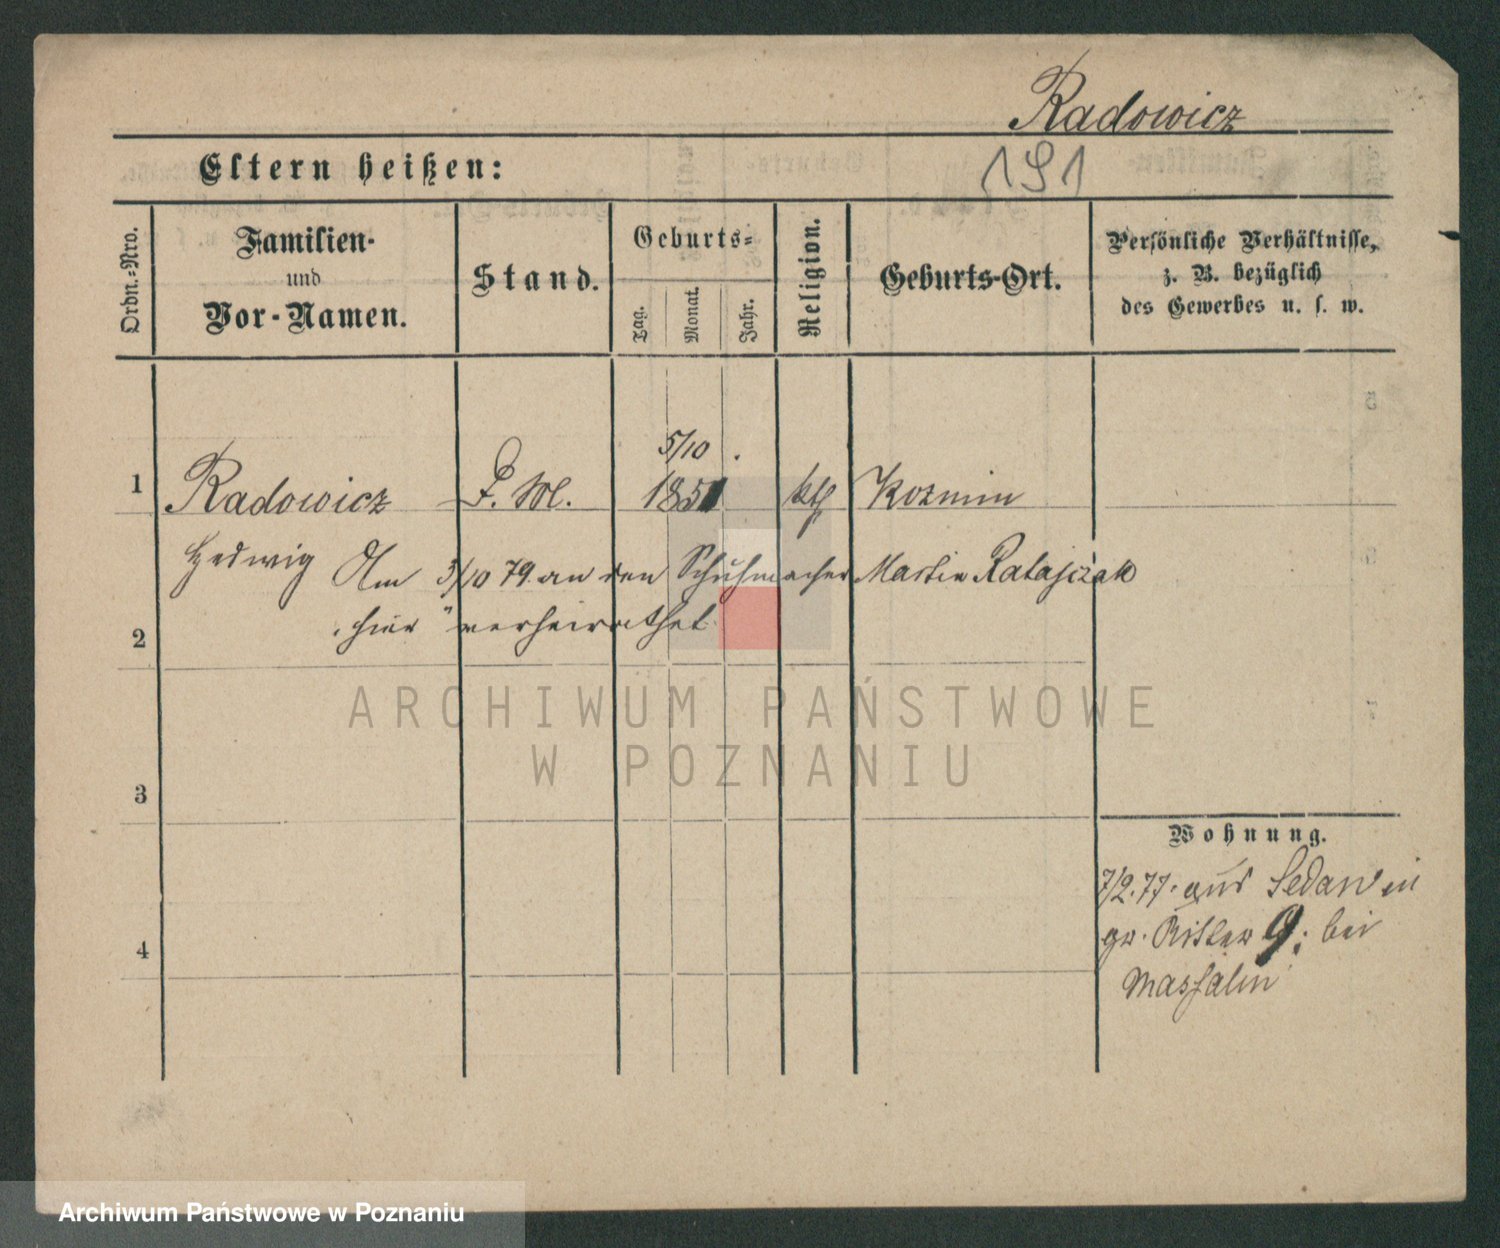 Radowicz
Eltern heißen:
191
Ordn.-Nro.
Familien-
und
Vor-Namen.
Stand.
Geburts-
Tag.
Monat.
Jahr.
Religion.
Geburts-Ort.
Persönliche Verhältnisse,
z. B. bezüglich
des Gewerbes u. s. w.
5/10.
1 Radowicz D. M. 1851 kth Kozmin
Hedwig Am 5/10 79 an den Schuhmacher Martin Ratajczak
hier verheirathet.
2
3
Wohnung.
7/2.77. aus Sedan in
gr. Ritter 9; bei
4
Massalin
ARCHIWUM PAŃSTWOWE
W POZNANIU
Archiwum Państwowe w Poznaniu